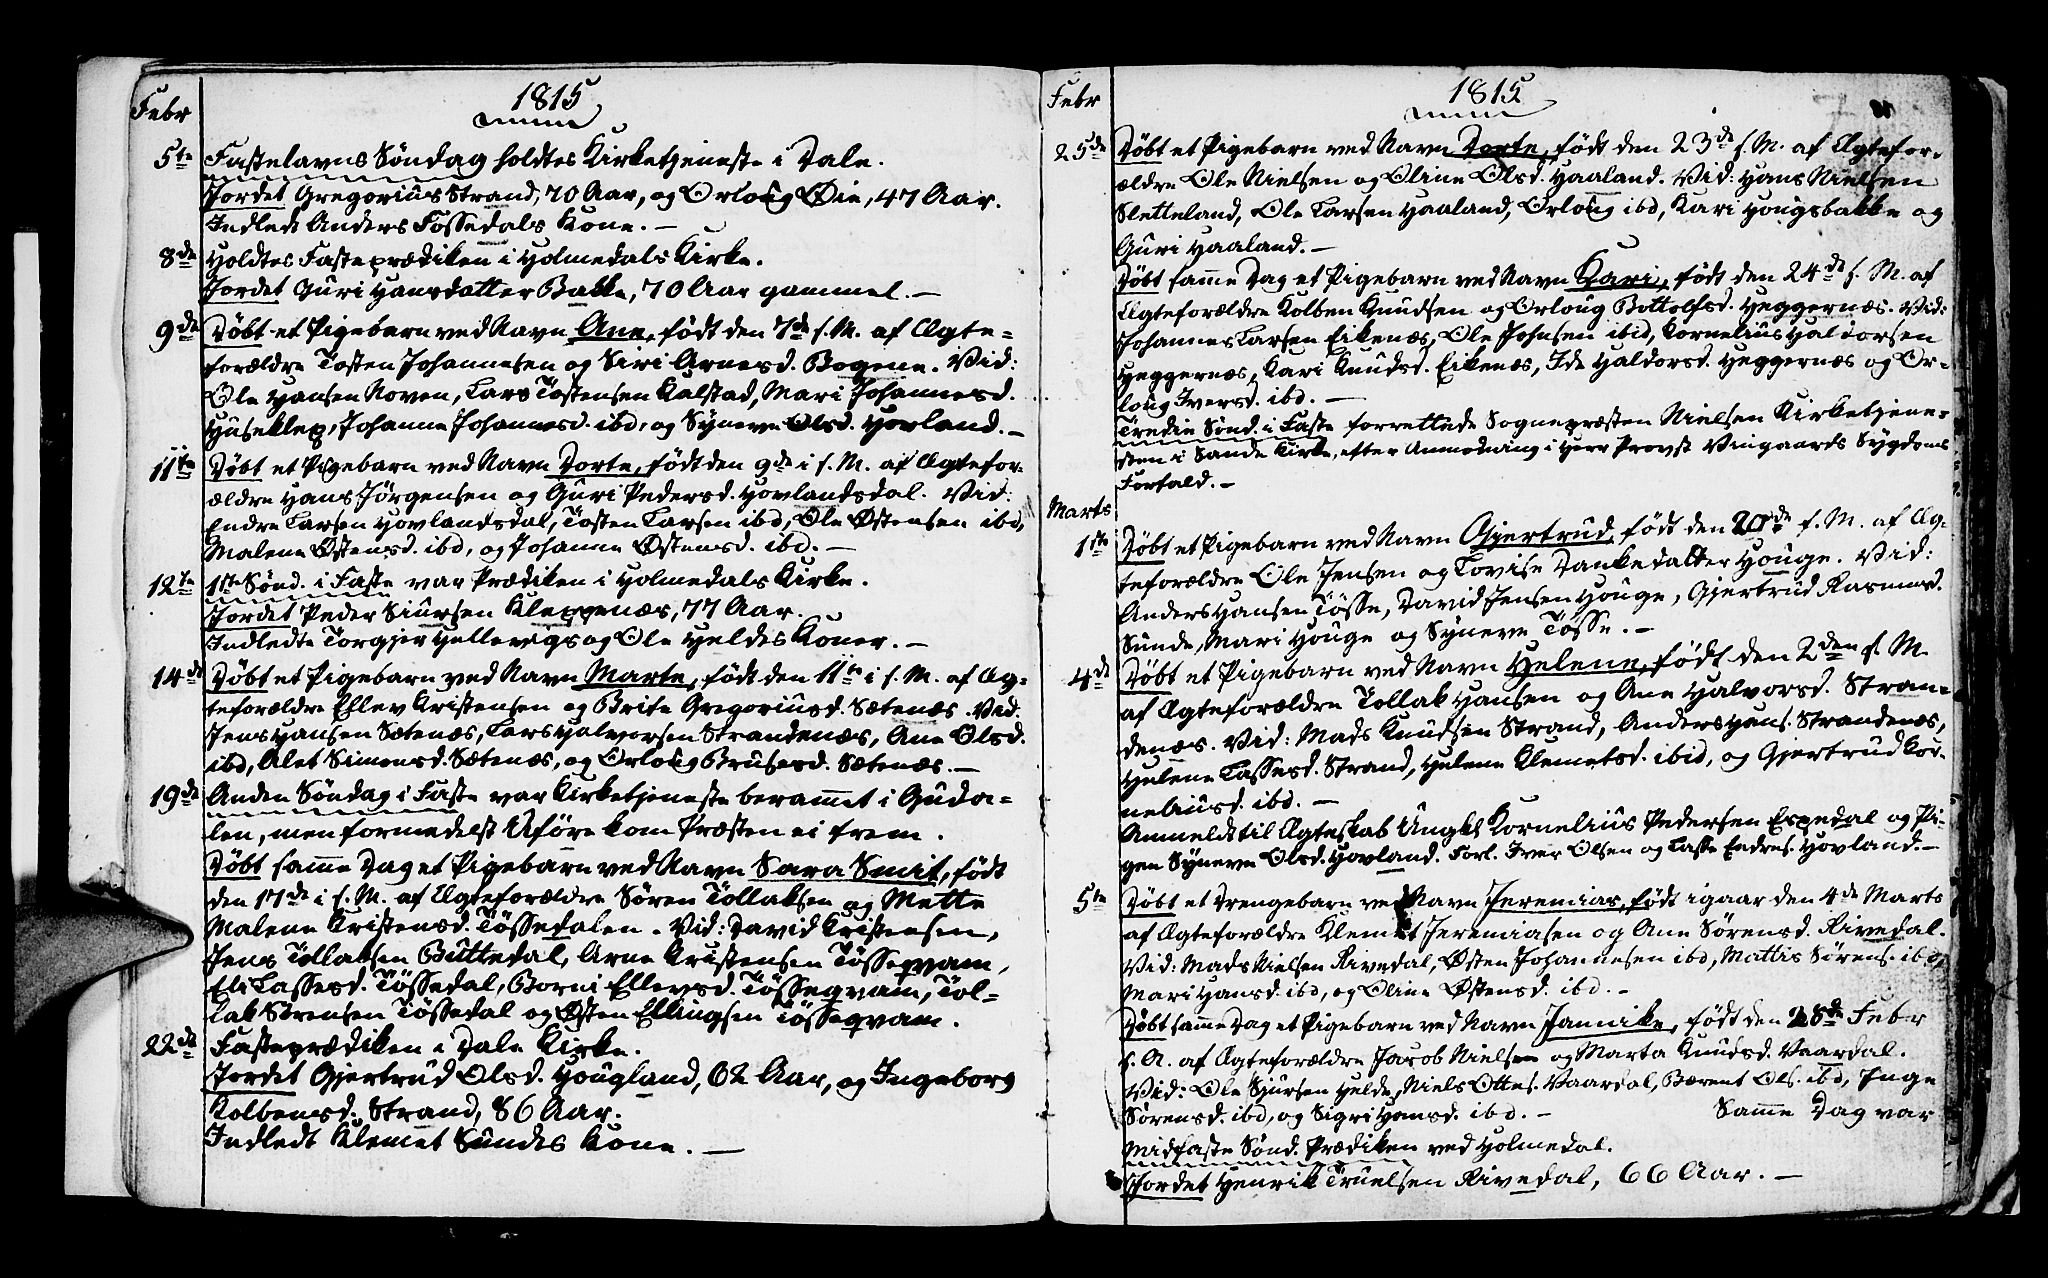 1815
Febr
5te Fastelavns Søndag holdtes Kirketjeneste i Dale.
Jordet Gregorius Strand, 70 Aar, og Orloug Øie, 47 Aar.
Indledt Anders Fossedals Kone. —
8de Holdtes Fasteprædiken i Holmedals Kirke.
Jordet Guri Hansdatter Bakke, 70 Aar gammel. —
9de Døbt et Pigebarn ved Navn Ane, født den 7de s. M. af Ægte=
forældre Tosten Johannesen og Siri Arnesd. Bogene. Vid:
Ole Hansen Noven, Lars Tostensen Kalstad, Mari Johannesd.
Huseklep, Johanne Johannesd. ibd, og Syneve Olsd. Hovland. —
11te Døbt et Pigebarn ved Navn Dorte, født den 9de i s. M. af Ægtefor-
ældre Hans Jörgensen og Guri Pedersd. Hovlandsdal. Vid:
Endre Larsen Hovlandsdal, Tosten Larsen ibd, Ole Østensen ibd,
Malene Østensd. ibd, og Johanne Østensd. ibd. —
12te 1ste Sønd. i Faste var Prædiken i Holmedals Kirke.
Jordet Peder Siursen Kleppenæs, 77 Aar.
Indledte Torgjer Hellevigs og Ole Heldes Koner. —
14de Døbt et Pigebarn ved Navn Marte, født den 11te i s. M. af Æg-
teforældre Ellev Kristensen og Brite Gregoriusd. Sætenæs. Vid:
Jens Hansen Sætenæs, Lars Halvorsen Strandenæs, Ane Olsd.
ibd, Alet Simonsd. Sætenæs, og Orloug Brusesd. Sætenæs. —
19de Anden Søndag i Faste var Kirketjeneste berammet i Guda=
len, men formedelst Uføre kom Præsten ei frem.
Døbt samme Dag et Pigebarn ved Navn Sara Smit, født
den 17de i s. M. af Ægteforældre Sören Tollaksen og Mette
Malene Kristensd. Tössedalen. Vid: David Kristensen,
Jens Tollaksen Buttedal, Arne Kristensen Tösseqvam,
Eli Lassesd. Tössedal, Borni Ellevsd. Tösseqvam, Tol=
lak Sörensen Tössedal og Østen Ellingsen Tösseqvam.
22de Fasteprædiken i Dale Kirke.
Jordet Gjertrud Olsd. Hougland, 62 Aar, og Ingeborg
Kolbensd. Strand, 86 Aar.
Indledt Klemet Sundes Kone. —
1815
Febr
25de Døbt et Pigebarn ved Navn Dorte, født den 23de s. M. af Ægtefor-
ældre Ole Nielsen og Oline Olsd. Haaland. Vid: Hans Nielsen
Sletteland, Ole Larsen Haaland, Orloug ibd, Kari Hougsbakke og
Guri Haaland. —
Døbt samme Dag et Pigebarn ved Navn Kari, født den 24de s. M. af
Ægteforældre Kolben Knudsen og Orloug Bottolfsd. Heggernæs. Vid:
Johannes Larsen Eikenæs, Ole Johnsen ibid, Kornelius Haldorsen
Heggernæs, Kari Knudsd. Eikenæs, Ide Haldorsd. Heggernæs og Or-
loug Iversd. ibd. —
Tredie Sønd. i Faste forrettede Sognepræsten Nielsen Kirketjene=
sten i Sande Kirke, efter Anmodning i Herr Provst Viingaards Sygdoms
Forfald. —
Marts
1ste Døbt et Pigebarn ved Navn Gjertrud, født den f. M. af Æg-
teforældre Ole Jensen og Lovise Dankedatter Houge. Vid:
Anders Hansen Tösse, David Jensen Houge, Gjertrud Rasmusd.
Sunde, Mari Houge og Syneve Tösse. —
4de Døbt et Pigebarn ved Navn Helene, født den 2den s. M.
af Ægteforældre Tollak Hansen og Ane Halvorsd. Stran=
denæs. Vid: Mads Knudsen Strand, Anders Hans. Strandenæs,
Helene Lassesd. Strand, Helene Klemetsd. ibid, og Gjertrud Kor-
neliusd. ibd. —
Anmeldt til Ægteskab Ungkl Kornelius Pedersen Espedal og Pi-
gen Syneve Olsd. Hovland. Forl. Iver Olsen og Lasse Endres. Hovland. —
5te Døbt et Drengebarn ved Navn Jeremias, født igaar den 4de Marts
af Ægteforældre Klemet Jeremiasen og Ane Sörensd. Rivedal.
Vid: Mads Nielsen Rivedal, Østen Johannesen ibd, Mattis Sörens. ibd,
Mari Hansd. ibd, og Oline Østensd. ibd. —
Døbt samme Dag et Pigebarn ved Navn Jannike, født den 28de Febr
s. A. af Ægteforældre Jacob Nielsen og Marta Knudsd. Vaardal.
Vid: Ole Sjursen Helde, Niels Ottes. Vaardal, Bærent Ols. ibd, Inge
Sörensd. ibd, og Sigri Hansd. ibd. — Samme Dag var
Midfaste Sønd. Prædiken ved Holmedal.
Jordet Henrik Truelsen Rivedal, 66 Aar. —